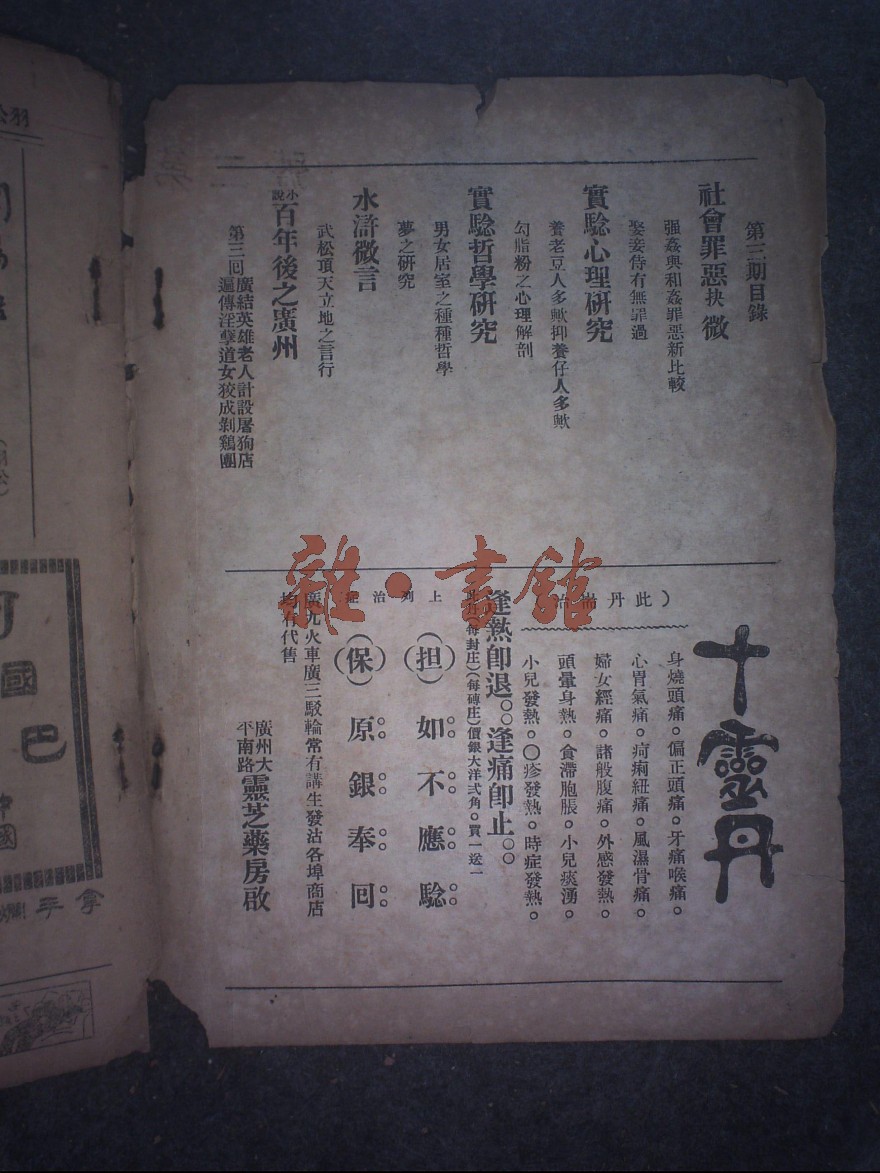 第三期目錄
社會罪惡抉微
强姦與和姦罪惡新比較
娶妾侍有無罪過
實騐心理研究
養老豆人多歟抑養仔人多歟
勾脂粉之心理解剖
實騐哲學研究
男女居室之種種哲學
夢之研究
水滸微言
武松頂天立地之言行
小說 百年後之廣州
第三回 廣結英雄老人計設屠狗店
遍傳淫孽道女狡成剝鷄團
十靈丹
(此丹
身燒頭痛。偏正頭痛。牙痛喉痛。
心胃氣痛。疴痢紐痛。風濕骨痛。
婦女經痛。諸般腹痛。外感發熱。
頭暈身熱。食滯胞脹。小兒痰湧。
小兒發熱。〇疹發熱。時症發熱。
逢熱卽退。〇〇逢痛卽止。〇〇
(每封庄)(每磚庄)價銀大洋弍角。買一送一
上列治症
(担)如不應騐
(保)原銀奉囘
廣九火車廣三駁輪常有講生發沽各埠商店
均有代售
廣州大平南路靈芝藥房啟
雜·書館
國
巴
中國
拿手